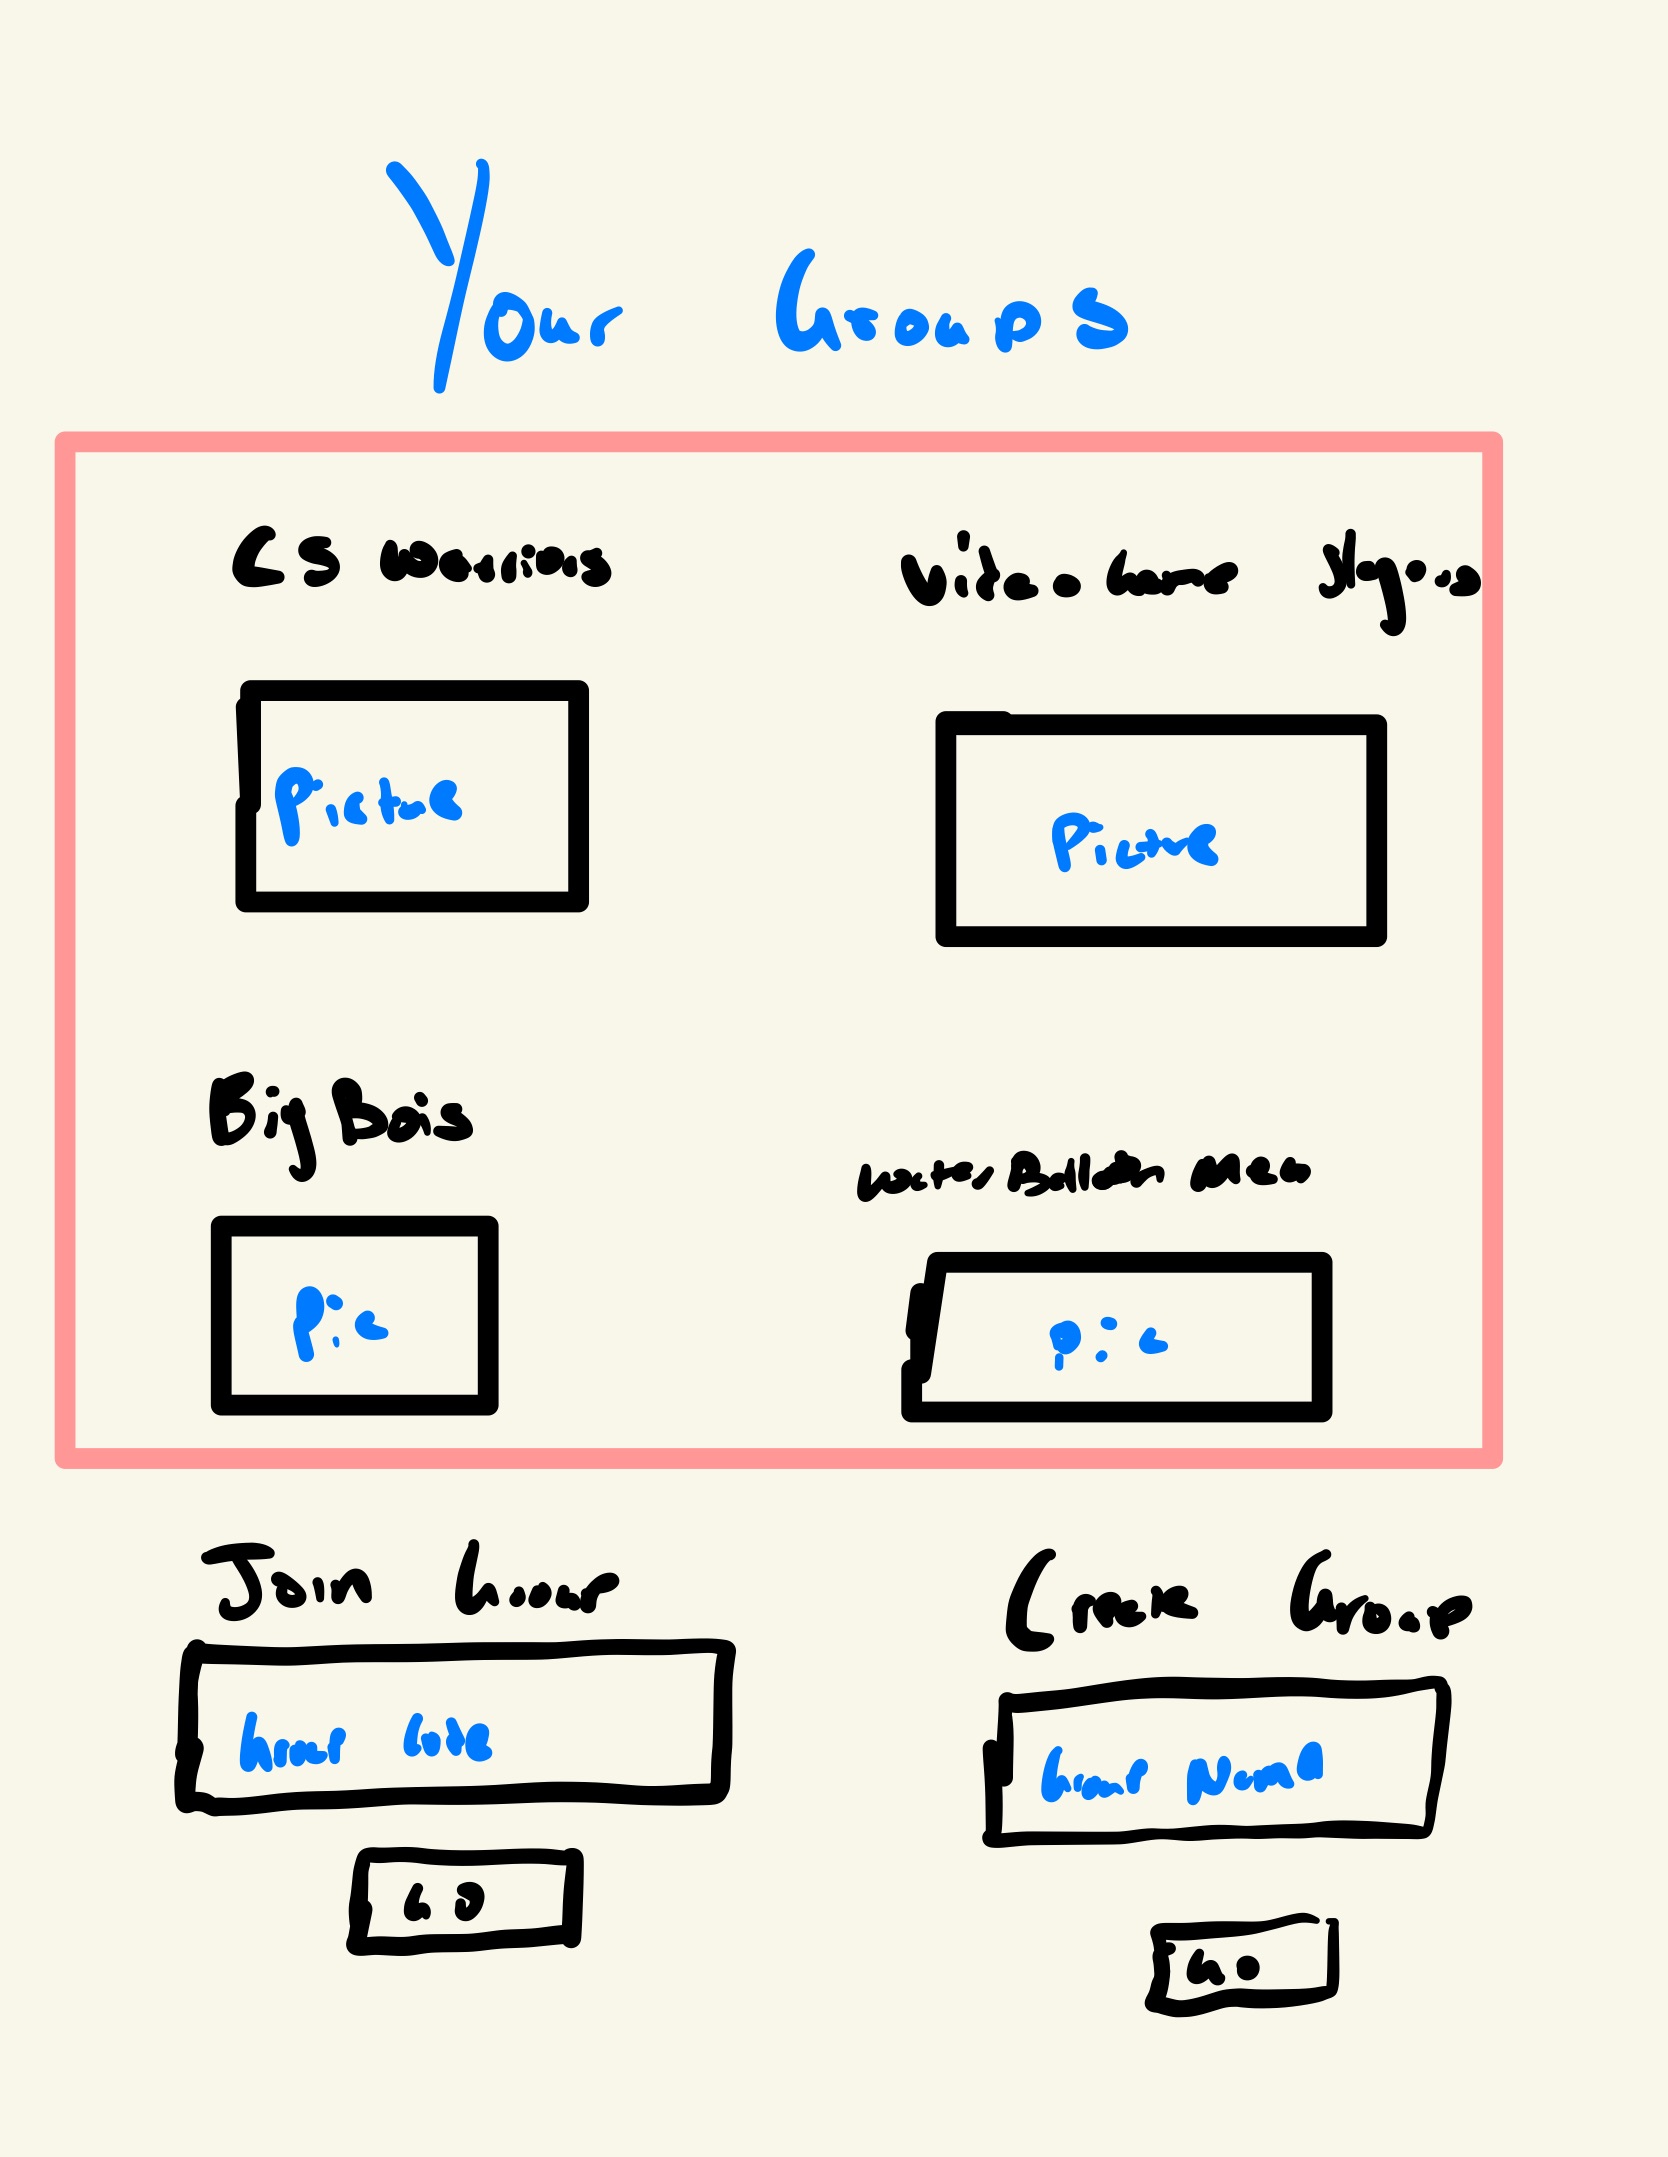 Your Groups
CS Warriors
Video Game Slayers
Picture
Picture
Big Bois
Water Balloon Men
Pic
Pic
Join Group
Create Group
Group Code
Group Name
GO
Go